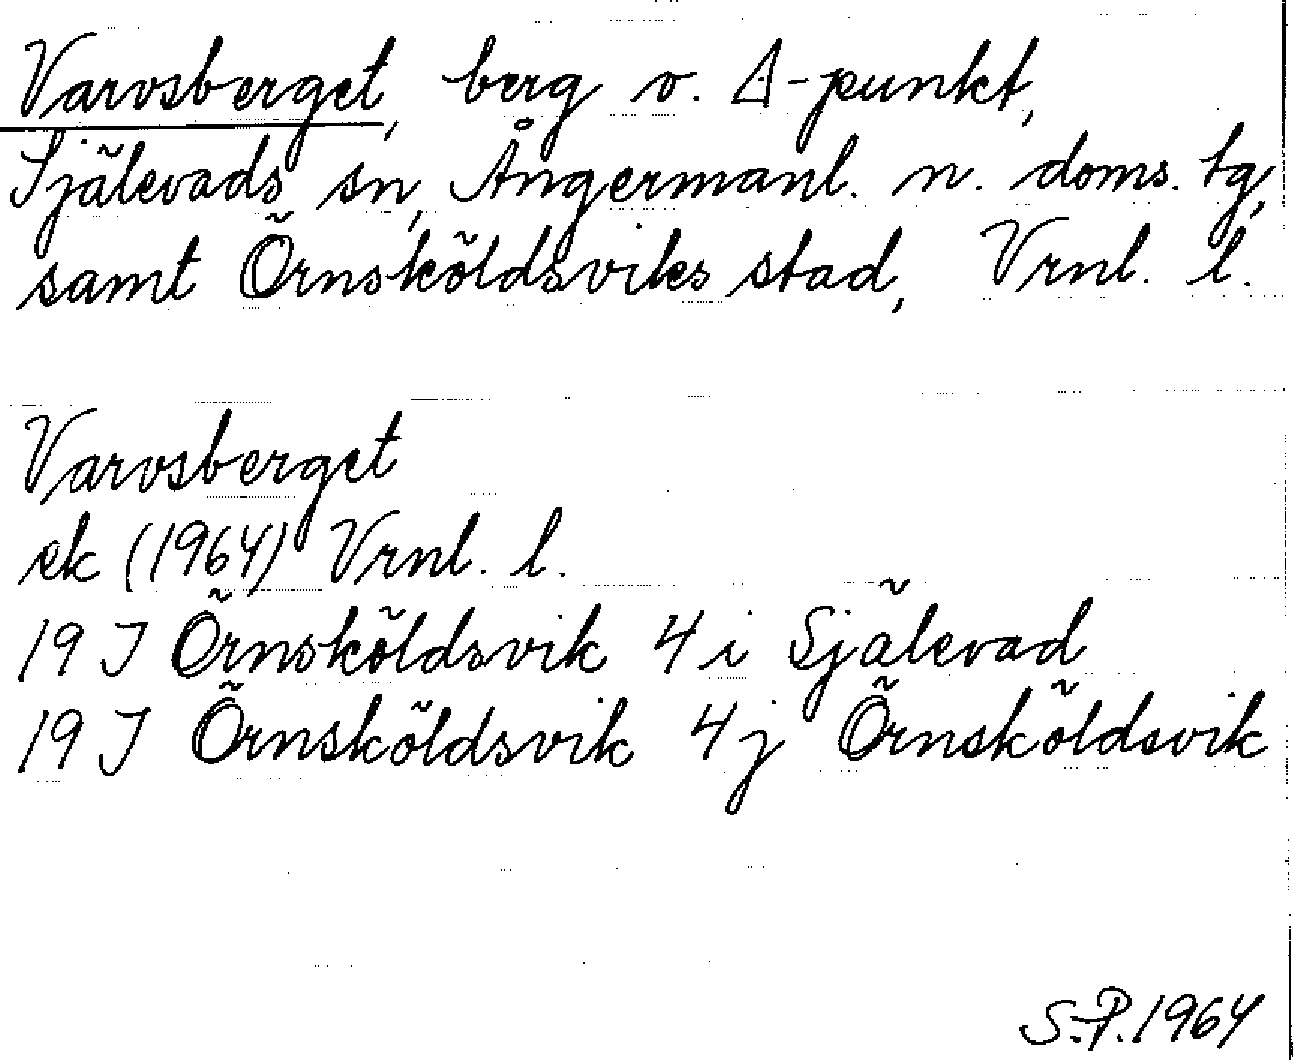 Varvsberget, berg o. Δ-punkt,
Själevads sn, Ångermanl. n. doms. tg,
samt Örnsköldsviks stad, Vrnl. l.
Varvsberget
ek (1964) Vrnl. l.
19 J Örnsköldsvik 4 i Själevad
19 J Örnsköldsvik 4 j Örnsköldsvik
S.P. 1964